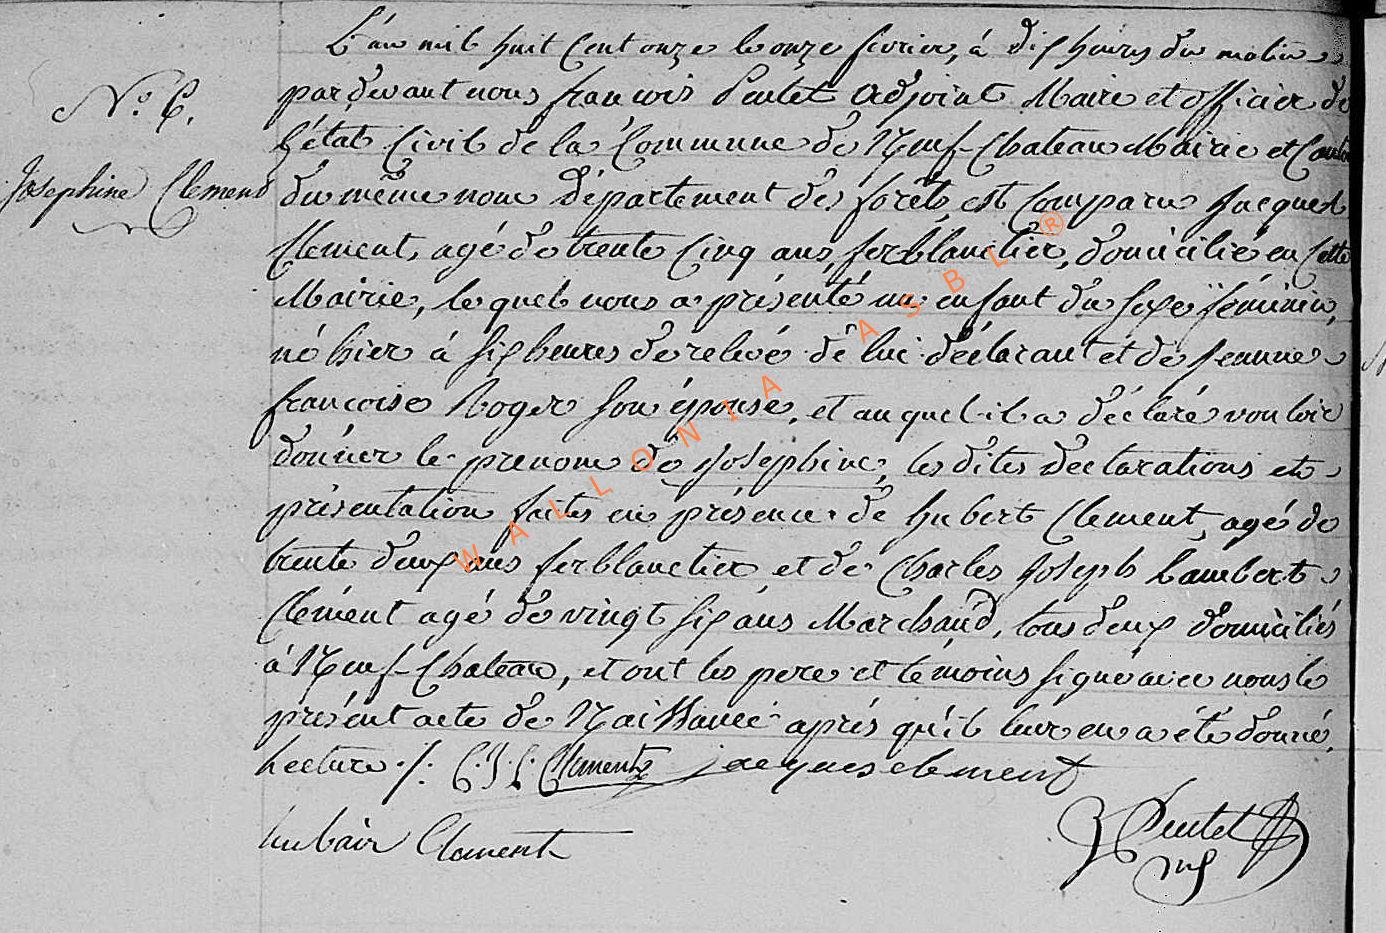 L'an mil huit cent onze le onze fevrier, à dix heures du matin
pardevant nous francois Pentet Adjoint Maire et officier de
N.° 6.
l'état Civil de la Commune de Neuf-Chateau Mairie et Canton
Josephine Clement
du même nom département des forêts est Comparu Jacques
Clement, agé de trente Cinq ans, ferblanctier, domicilié en Cette
Mairie, le quel nous a présenté un enfant du sexe féminin,
né hier à six heures de relevé de lui déclarant et de Jeanne
francoise Roger son épouse, et au quel il a déclaré vouloir
donner le prenom de Josephine, les dites declarations et
présentation faites en présence de hubert Clement, agé de
trente deux ans ferblanctier et de Charles Joseph Lambert
Clément agé de vingt six ans Marchand, tous deux domiciliés
à Neuf-Chateau, et ont les pere et témoins signé avec nous le
présent acte de Naissance après qu'il leur en a été donné
Lecture ./. C. J. L. Clement jacques clement
hubair Clament
Pentet
WALLONIA ASBL ®